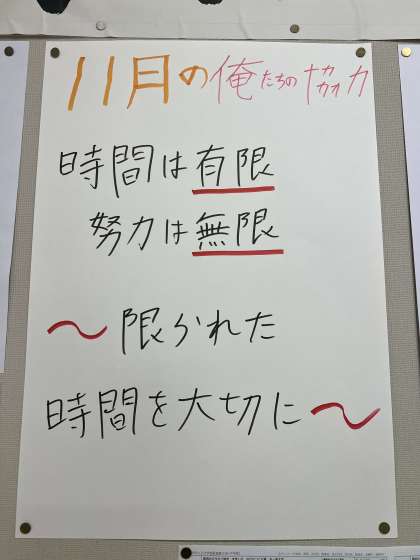 11月の俺たちの協力
時間は有限
努力は無限
～限られた
時間を大切に～